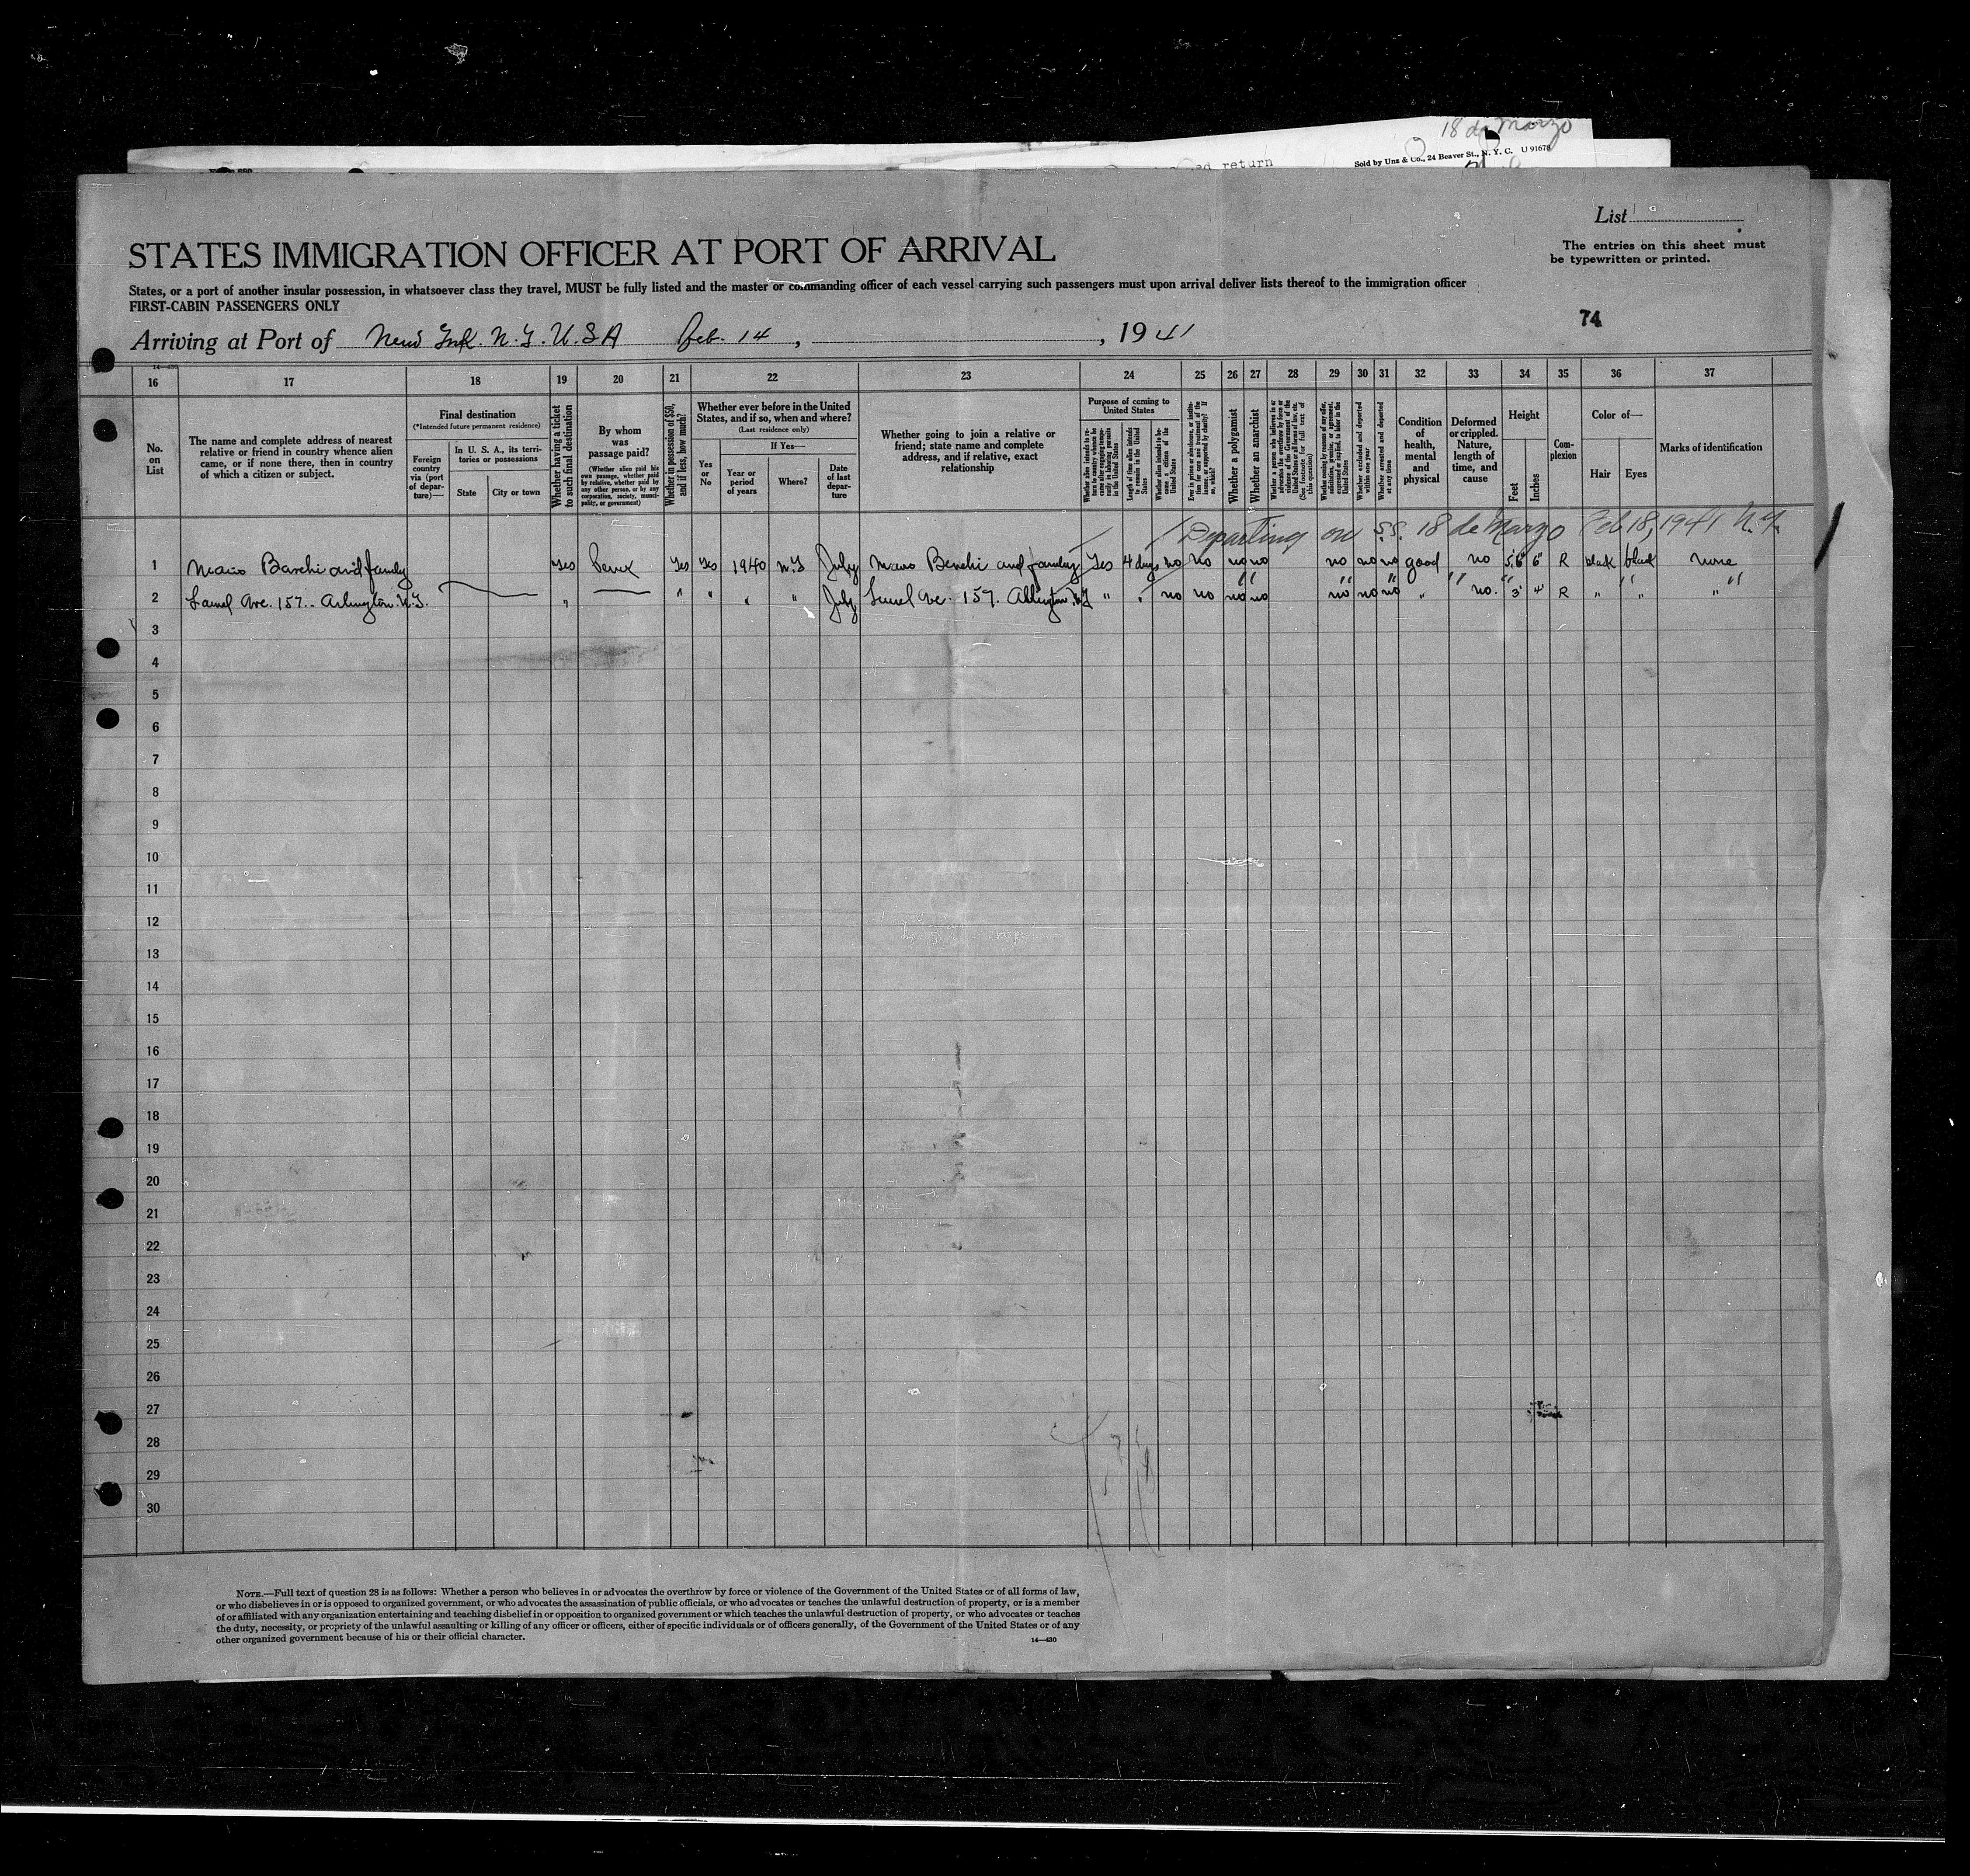 18 de Marzo
ed return
Sold by Unz & Co., 24 Beaver St., N. Y. C. U 91678
List
The entries on this sheet must
be typewritten or printed.
STATES IMMIGRATION OFFICER AT PORT OF ARRIVAL
States, or a port of another insular possession, in whatsoever class they travel, MUST be fully listed and the master or commanding officer of each vessel carrying such passengers must upon arrival deliver lists thereof to the immigration officer
FIRST-CABIN PASSENGERS ONLY
74
Arriving at Port of New York. N.Y. U.S.A Feb. 14, , 1941
14—430
16 17 18 19 20 21 22 23 24 25 26 27 28 29 30 31 32 33 34 35 36 37
No.
on
List
The name and complete address of nearest
relative or friend in country whence alien
came, or if none there, then in country
of which a citizen or subject.
Final destination
(*Intended future permanent residence)
Foreign
country
via (port
of depar-
ture)—
In U. S. A., its terri-
tories or possessions
State
City or town
Whether having a ticket
to such final destination
By whom
was
passage paid?
(Whether alien paid his
own passage, whether paid
by relative, whether paid by
any other person, or by any
corporation, society, munici-
pality, or government)
Whether in possession of $50,
and if less, how much?
Whether ever before in the United
States, and if so, when and where?
(Last residence only)
Yes
or
No
If Yes—
Year or
period
of years
Where?
Date
of last
depar-
ture
Whether going to join a relative or
friend; state name and complete
address, and if relative, exact
relationship
Purpose of coming to
United States
Whether alien intends to re-
turn to country whence he
came after engaging tempo-
rarily in laboring pursuits
in the United States
Length of time alien intends
to remain in the United
States
Whether alien intends to be-
come a citizen of the
United States
Ever in prison or almshouse, or institu-
tion for care and treatment of the
insane, or supported by charity? If
so, which?
Whether a polygamist
Whether an anarchist
Whether a person who believes in or
advocates the overthrow by force or
violence of the Government of the
United States or all forms of law, etc.
(See footnote for full text of
this question)
Whether coming by reasons of any offer,
solicitation, promise, or agreement,
expressed or implied, to labor in the
United States
Whether excluded and deported
within one year
Whether arrested and deported
at any time
Condition
of
health,
mental
and
physical
Deformed
or crippled.
Nature,
length of
time, and
cause
Height
Feet
Inches
Com-
plexion
Color of—
Hair
Eyes
Marks of identification
Departing on S.S. 18 de Marzo Feb 18, 1941 N.Y.
1 and family Yes Yes Yes 1940 N.Y July and family Yes 4 days no no no no no no no good no 5'6" 6" R black black none
2 Ave. 157. Arlington N.J. " " " " " July Ave. 157. Arlington N.J " " no no no no no no no " no. 3' 4" R " " "
3
4
5
6
7
8
9
10
11
12
13
14
15
16
17
18
19
20
21
22
23
24
25
26
27
28
29
30
NOTE.—Full text of question 28 is as follows: Whether a person who believes in or advocates the overthrow by force or violence of the Government of the United States or of all forms of law,
or who disbelieves in or is opposed to organized government, or who advocates the assassination of public officials, or who advocates or teaches the unlawful destruction of property, or is a member
of or affiliated with any organization entertaining and teaching disbelief in or opposition to organized government or which teaches the unlawful destruction of property, or who advocates or teaches
the duty, necessity, or propriety of the unlawful assaulting or killing of any officer or officers, either of specific individuals or of officers generally, of the Government of the United States or of any
other organized government because of his or their official character.
14—430